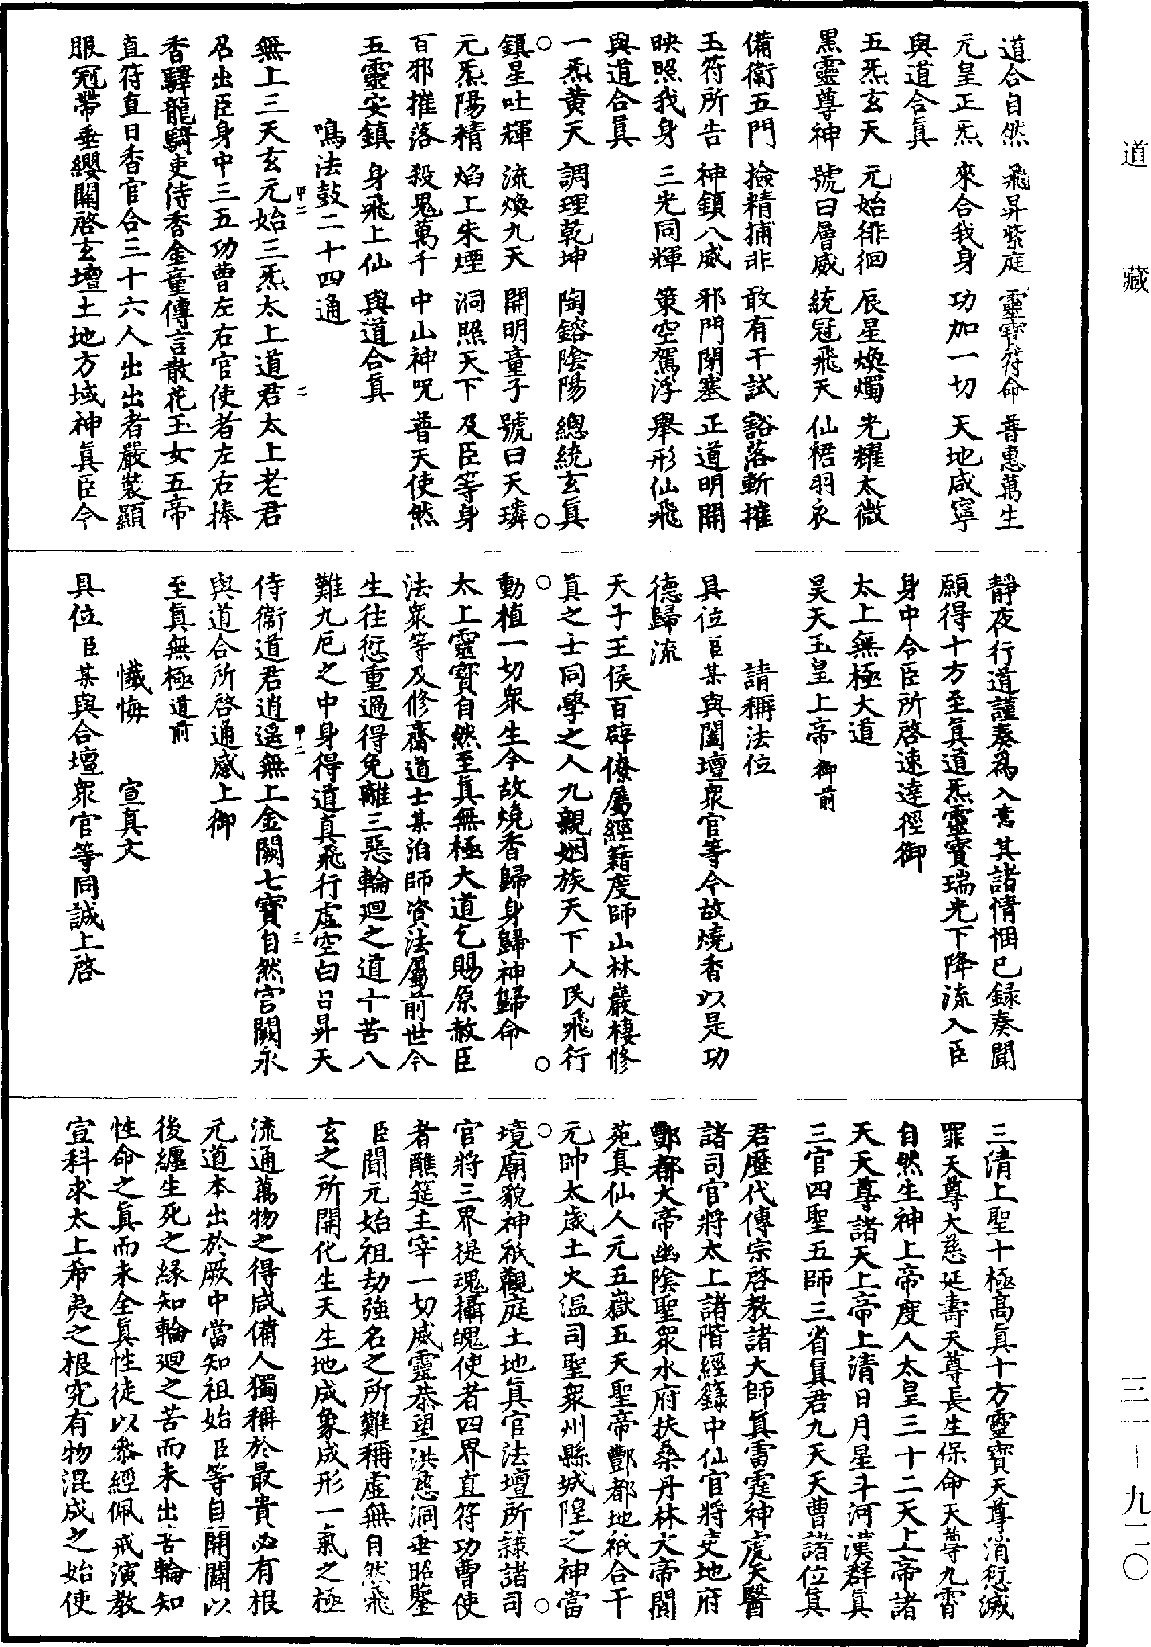 道藏
三一-九二〇
道合自然　飛昇紫庭　靈寶符命　普惠萬生
元皇正炁　來合我身　功加一切　天地咸寧
與道合真
五炁玄天　元始徘徊　辰星煥燭　光耀太微
黑靈尊神　號曰層威　統冠飛天　仙裙羽衣
備衛五門　撿精捕非　敢有干試　豁落斬摧
玉符所告　神鎮八威　邪門閉塞　正道明開
映照我身　三光同輝　策空駕浮　舉形仙飛
與道合真
一炁黃天　調理乾坤　陶鎔陰陽　總統玄真
鎮星吐輝　流煥九天　開明童子　號曰天璘
元炁陽精　焰上朱煙　洞照天下　及臣等身
百邪摧落　殺鬼萬千　中山神呪　普天使然
五靈安鎮　身飛上仙　與道合真
鳴法鼓二十四通
無上三天玄元始三炁太上道君太上老君
召出臣身中三五功曹左右官使者左右捧
香驛龍騎吏侍香金童傳言散花玉女五帝
直符直日香官合三十六人出出者嚴裝顯
服冠帶垂纓關啓玄壇土地方域神真臣今
靜夜行道謹奏為入意其諸情悃已錄奏聞
願得十方至真道炁靈寶瑞光下降流入臣
身中令臣所啓速達徑御
太上無極大道
昊天玉皇上帝御前
請稱法位
具位臣某與闔壇衆官等今故燒香以是功
德歸流
天子王侯百辟僚屬經籍度師山林巖棲修
真之士同學之人九親姻族天下人民飛行
動植一切衆生今故燒香歸身歸神歸命
太上靈寶自然至真無極大道乞賜原赦臣
法衆等及修齋道士某洎師資法屬前世今
生往愆重過得免離三惡輪廻之道十苦八
難九厄之中身得道真飛行虛空白日昇天
侍衛道君逍遙無上金闕七寶自然宮闕永
與道合所啓通感上御
至真無極道前
懺悔　宣真文
具位臣某與合壇衆官等同誠上啓
三清上聖十極高真十方靈寶天尊消愆滅
罪天尊大慈延壽天尊長生保命天尊九霄
自然生神上帝度人太皇三十二天上帝諸
天天尊諸天上帝上清日月星斗河漢群真
三官四聖五師三省真君九天天曹諸位真
君歷代傳宗啓教諸大師真雷霆神虎天醫
諸司官將太上諸階經籙中仙官將吏地府
酆都大帝幽陰聖衆水府扶桑丹林大帝閬
苑真仙人元五嶽五天聖帝酆都地祇合干
元帥太歲土火溫司聖衆州縣城隍之神當
境廟貌神祇觀庭土地真官法壇所隷諸司
官將三界提魂攝魄使者四界直符功曹使
者醮筵主宰一切威靈恭望洪慈洞垂昭鑒
臣聞元始祖劫強名之所難稱虛無自然飛
玄之所開化生天生地成象成形一氣之極
流通萬物之得咸備人獨稱於最貴必有根
元道本出於厥中當知祖始臣等自開闢以
後纏生死之緣知輪廻之苦而未出苦輪知
性命之真而未全真性徒以叅經佩戒演教
宣科求太上希夷之根究有物混成之始使